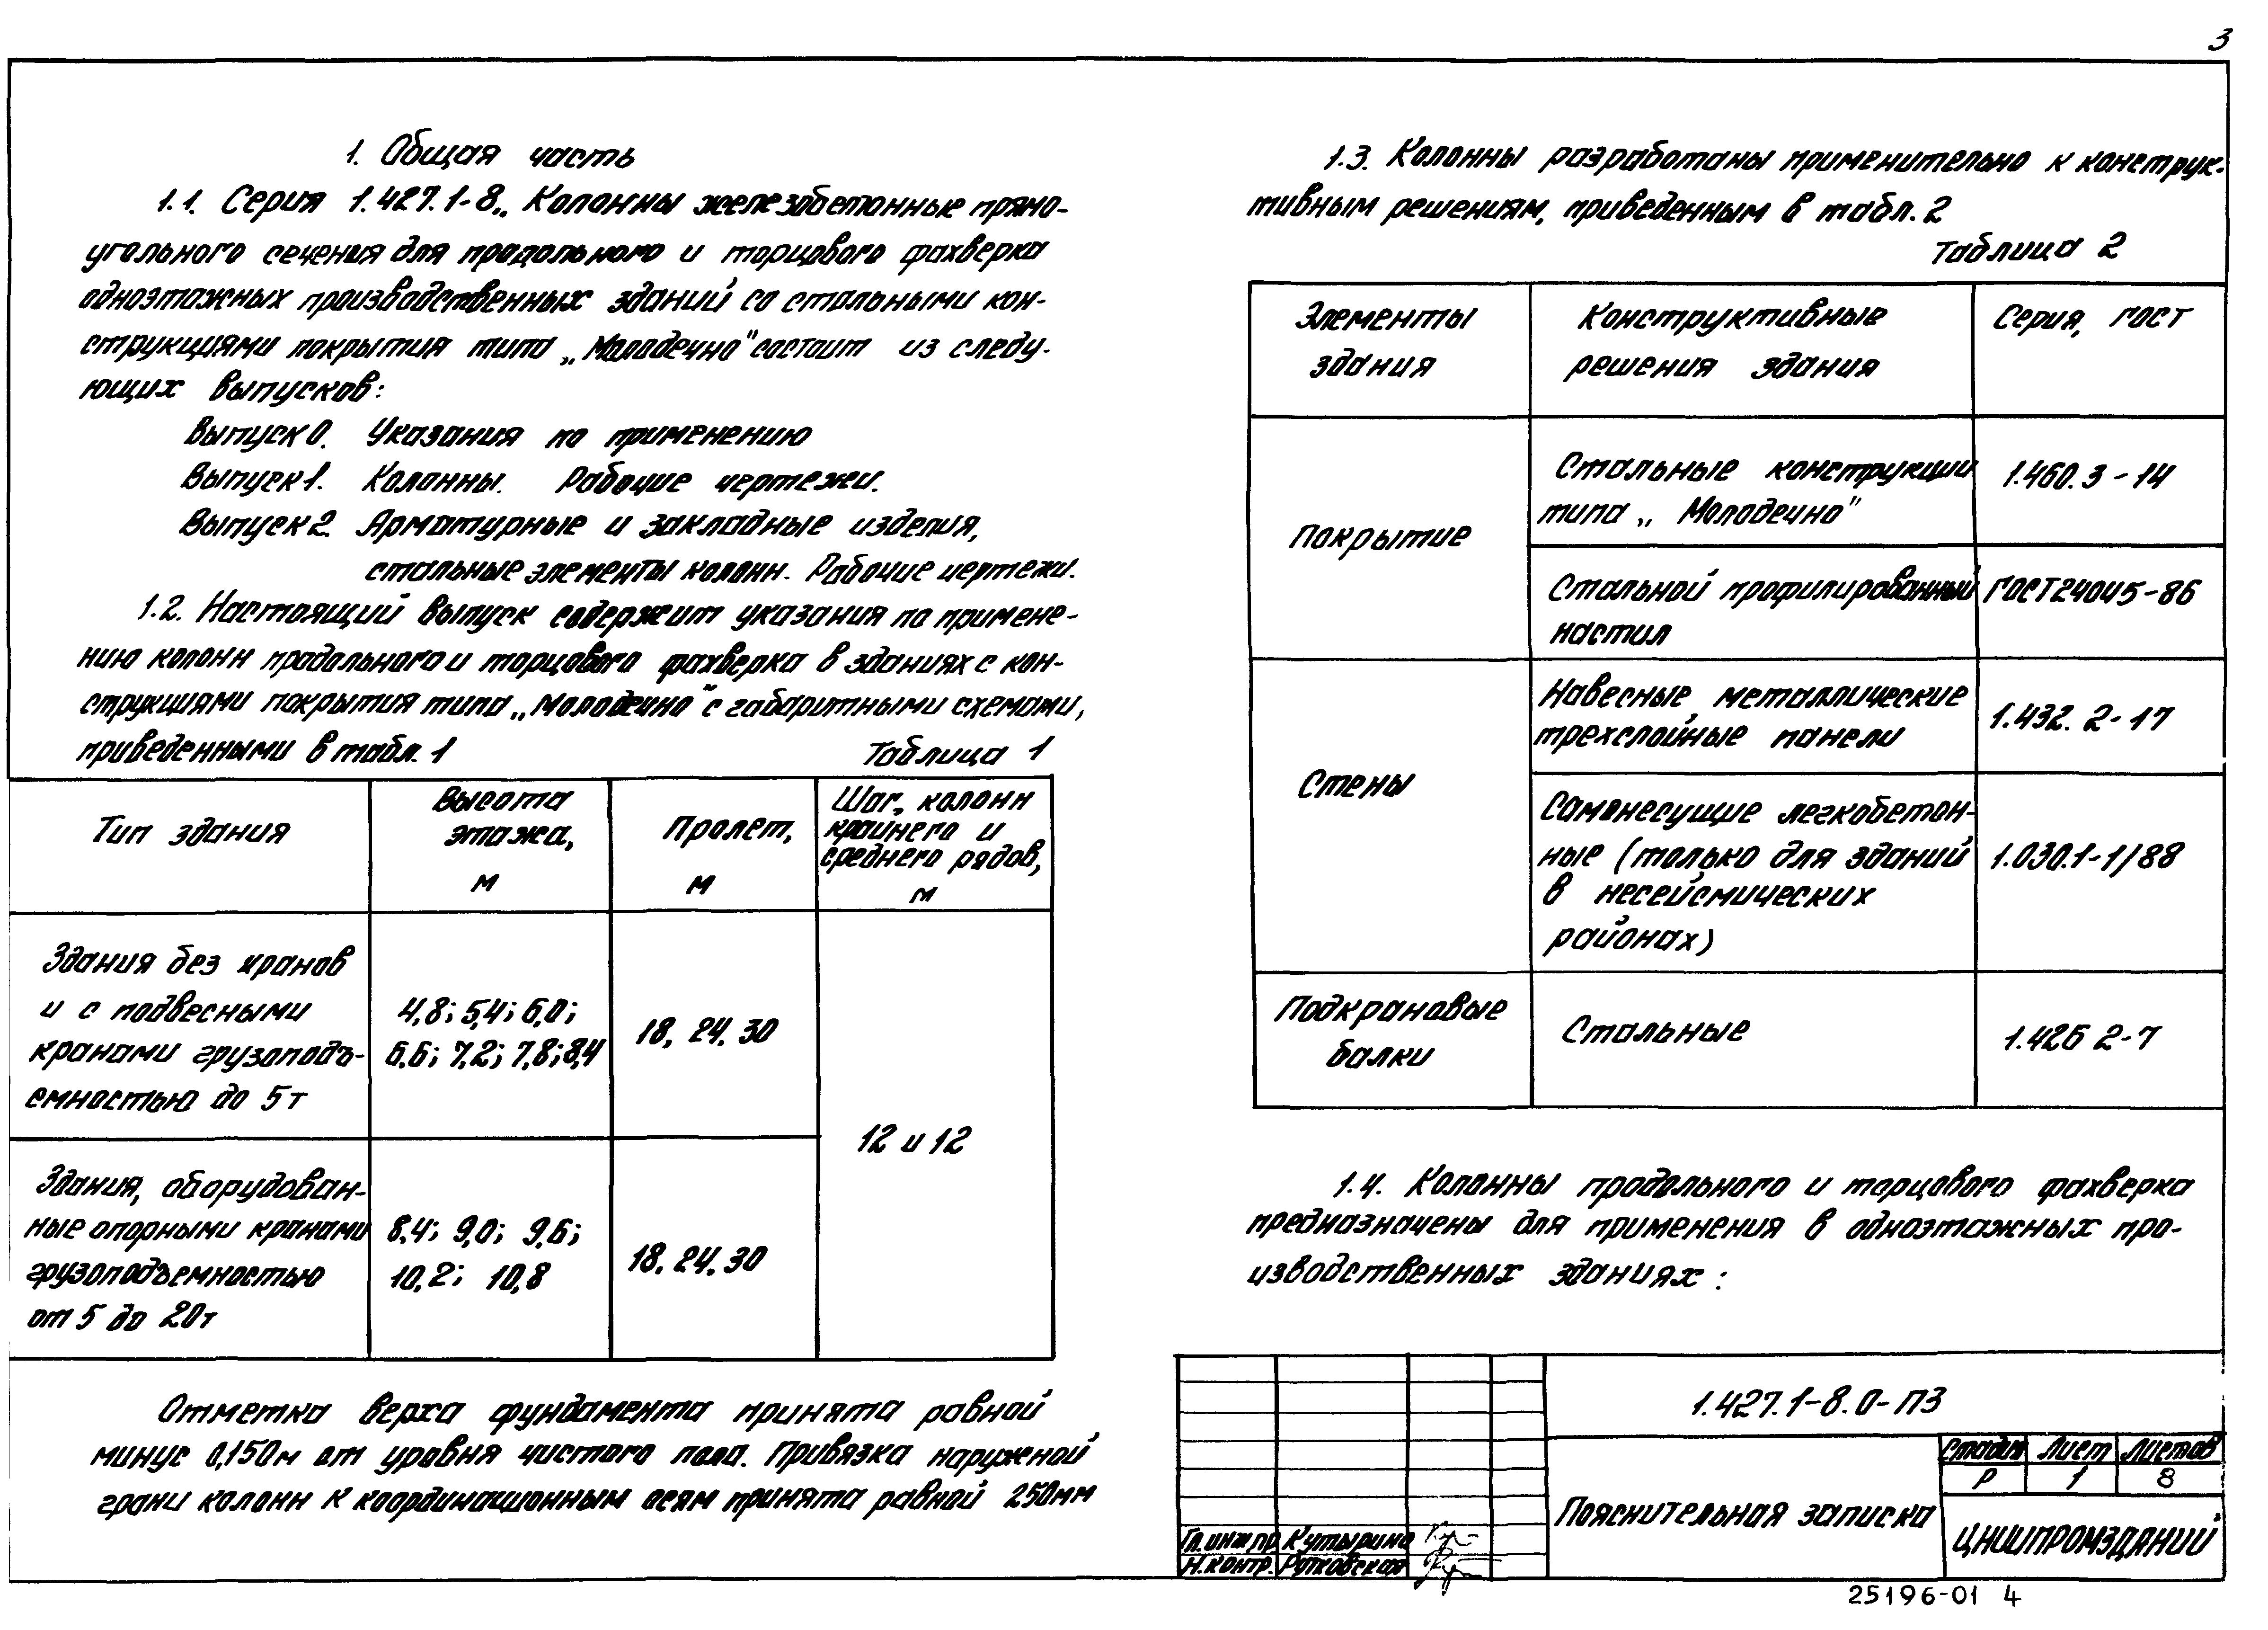 3
1. Общая часть
1.1. Серия 1.427.1-8 „Колонны железобетонные прямо-
угольного сечения для продольного и торцового фахверка
одноэтажных производственных зданий со стальными кон-
струкциями покрытия типа „Молодечно" состоит из следу-
ющих выпусков:
Выпуск 0. Указания по применению
Выпуск 1. Колонны. Рабочие чертежи.
Выпуск 2. Арматурные и закладные изделия,
стальные элементы колонн. Рабочие чертежи.
1.2. Настоящий выпуск содержит указания по примене-
нию колонн продольного и торцового фахверка в зданиях с кон-
струкциями покрытия типа „Молодечно" с габаритными схемами,
приведенными в табл. 1
Таблица 1
Тип здания
Высота
этажа,
м
Пролет,
м
Шаг, колонн
крайнего и
среднего рядов,
м
Здания без кранов
и с подвесными
кранами грузоподъ-
емностью до 5т
4,8; 5,4; 6,0;
6,6; 7,2; 7,8; 8,4
18, 24, 30
12 и 12
Здания, оборудован-
ные опорными кранами
грузоподъемностью
от 5 до 20т
8,4; 9,0; 9,6;
10,2; 10,8
18, 24, 30
Отметка верха фундамента принята равной
минус 0,150м от уровня чистого пола. Привязка наружной
грани колонн к координационным осям принята равной 250мм
1.3. Колонны разработаны применительно к конструк-
тивным решениям, приведенным в табл. 2
Таблица 2
Элементы
здания
Конструктивные
решения здания
Серия, ГОСТ
Покрытие
Стальные конструкции
типа „Молодечно"
1.460.3-14
Стальной профилированный
настил
ГОСТ 24045-86
Стены
Навесные металлические
трехслойные панели
1.432.2-17
Самонесущие легкобетон-
ные (только для зданий
в несейсмических
районах)
1.030.1-1/88
Подкрановые
балки
Стальные
1.426 2-7
1.4. Колонны продольного и торцового фахверка
предназначены для применения в одноэтажных про-
изводственных зданиях:
1.427.1-8.0-ПЗ
Пояснительная записка
Стадия Лист Листов
Р 1 8
ЦНИИПРОМЗДАНИЙ
Гл. инж. пр. Кутырина
Н. контр. Рутковская
25196-01 4